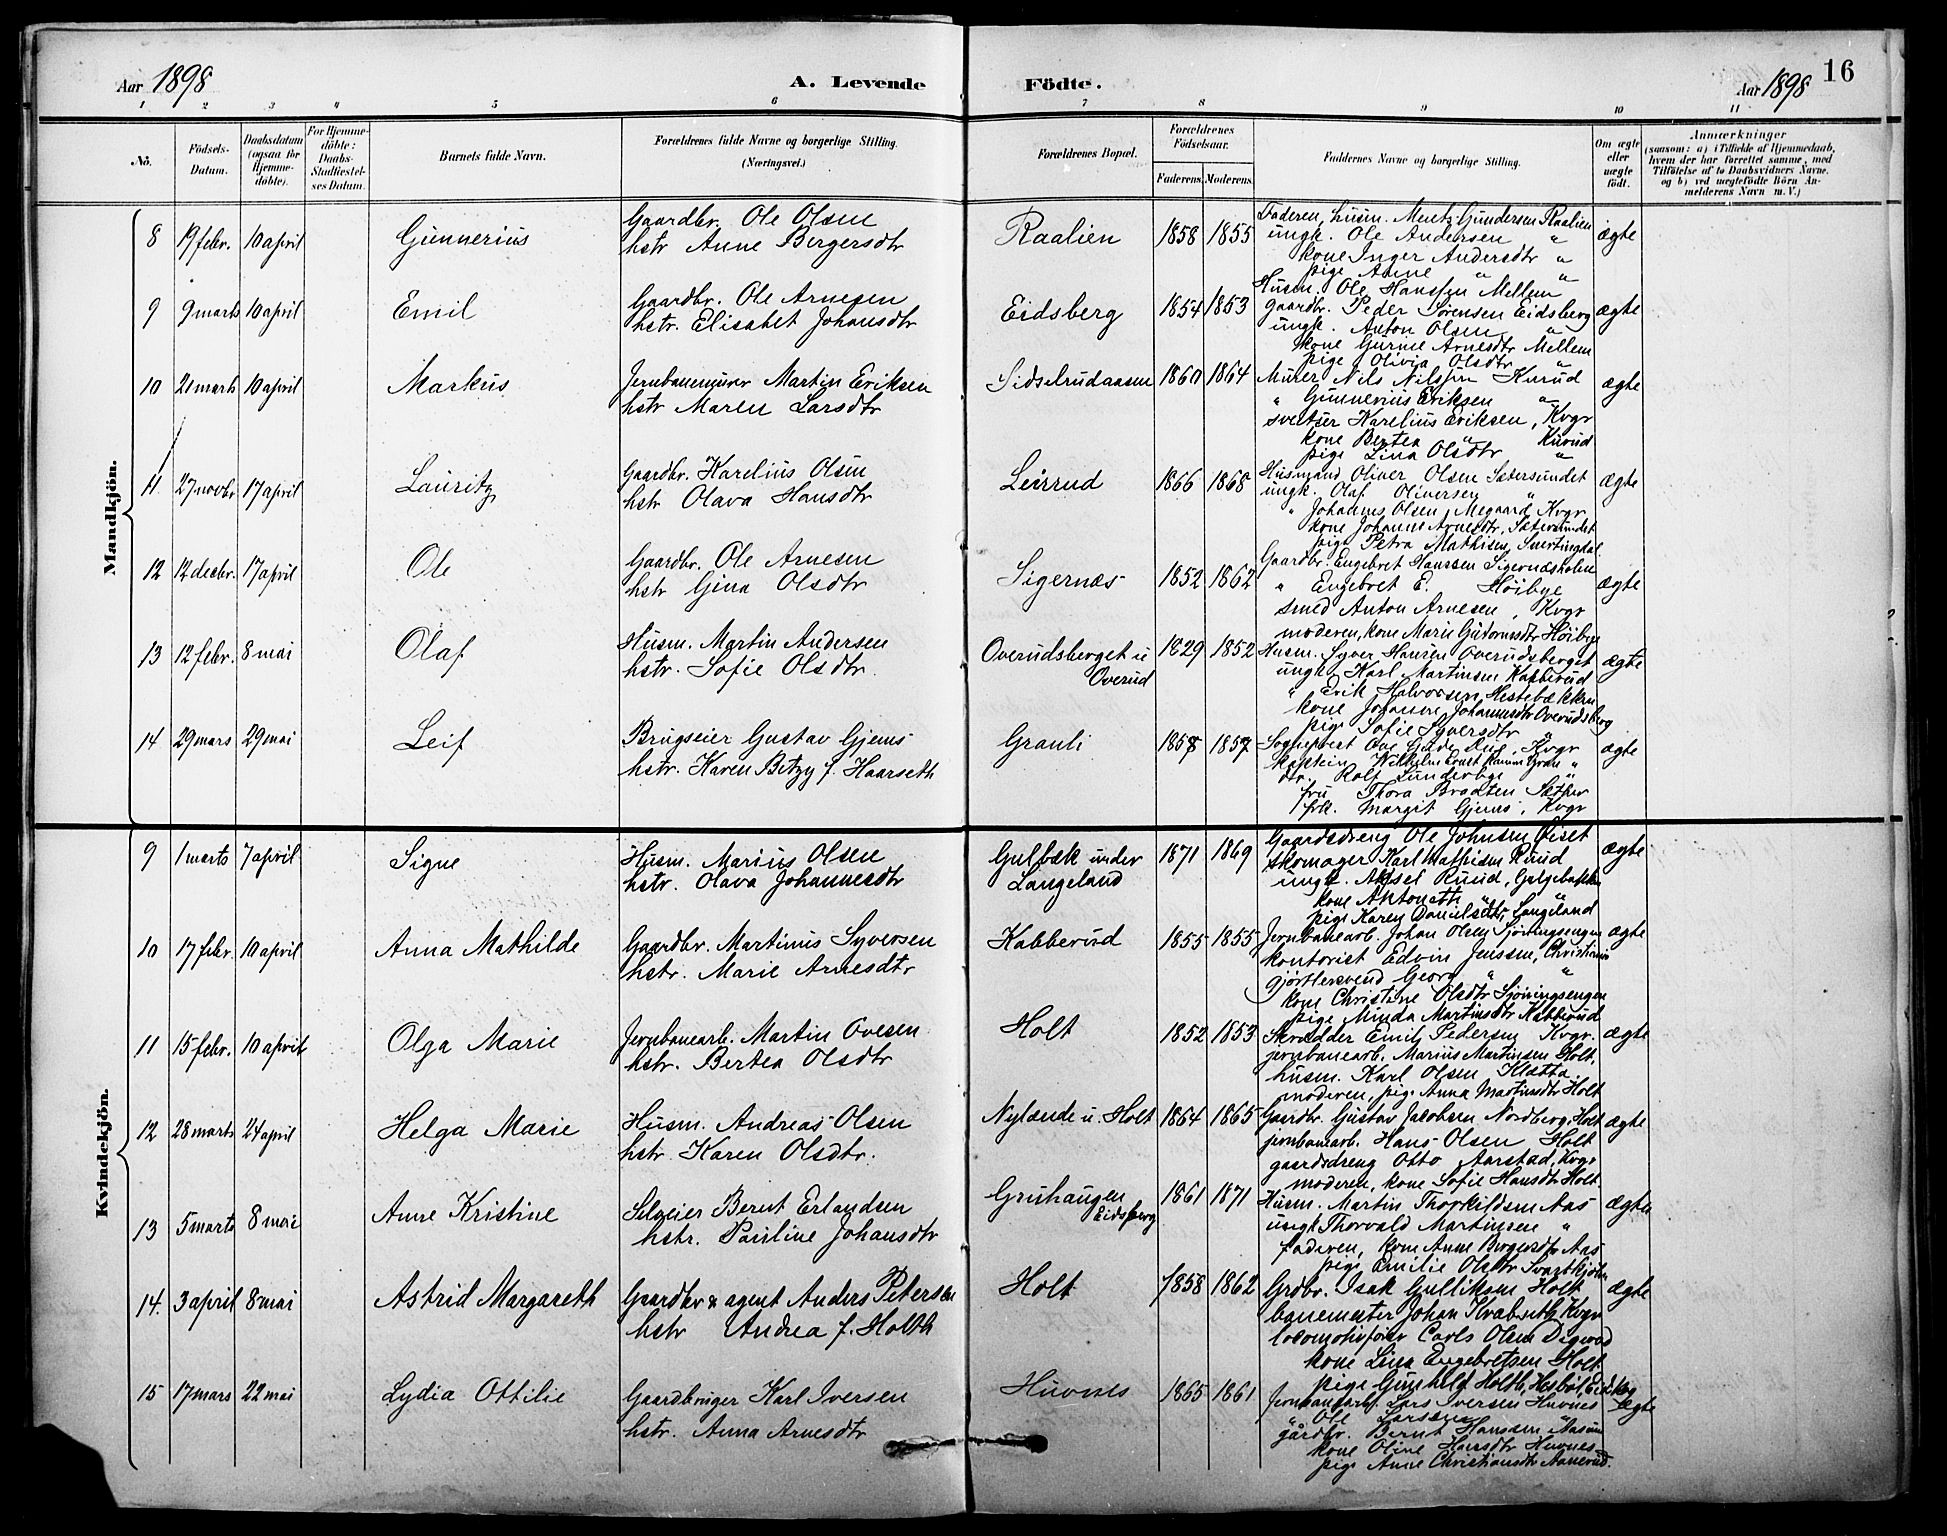 Aar 1898
A. Levende
Födte.
Aar 1898
16
1 2 3 4 5 6 7 8 9 10 11
No.
Födsels-Datum.
Daabsdatum (ogsaa for Hjemmedöbte).
For Hjemmedöbte: Daabs-Stadfæstelses Datum.
Barnets fulde Navn.
Forældrenes fulde Navne og borgerlige Stilling. (Næringsvei.)
Forældrenes Bopæl.
Forældrenes Födselsaar.
Faderens. Moderens.
Faddernes Navne og borgerlige Stilling.
Om ægte eller uægte födt.
Anmærkninger
(saasom: a) i Tilfælde af Hjemmedaab, hvem der har forrettet samme, med Tilföielse af to Daabsvidners Navne, og b) ved uægtefödte Börn Anmelderens Navn m. V.)
Mandkjön.
8 19 febr. 10 april Gunnerius Gaardbr. Ole Olsen Raalien 1858 1855 ægte
hstr Anne Bergersdtr
Faderen, husm. Mentz Gundersen Raalien
ungk. Ole Andersen "
kone Inger Andersdtr "
pige Anne " "
9 9 marts 10 april Emil Gaardbr. Ole Arnesen Eidsberg 1854 1853 ægte
hstr. Elisabet Johansdtr
Husm. Ole Hanssen Mellem
gaardbr. Peder Sørensen Eidsberg
ungk. Anton Olsen "
kone Gurine Arnesdtr Mellem
pige Olivia Olsdtr "
10 21 marts 10 april Markus Jernbanemurer Martin Eriksen Sidselrudaasen 1860 1864 ægte
hstr Maren Larsdtr
Murer Nils Nilssen Kurud
" Gunnerius Eriksen "
sveitser Karelius Eriksen, Kvgr
kone Bertea " Kurud
pige Lina Olsdtr "
11 27 novbr 17 april Lauritz Gaardbr. Karelius Olsen Leirrud 1866 1868 ægte
hstr Olava Hansdtr
Husmand Oliver Olsen Sætersundet
ungk. Olaf Oliversen "
" Johannes Olsen Megaard Kvgr
kone Johanne Arnesdtr, Sætersundet
pige Petra Mathisen Snertingdal
12 12 decbr. 17 april Ole Gaardbr. Ole Arnesen Sigernæs 1852 1862 ægte
hstr Gina Olsdtr
Gaardbr. Engebret Hanssen Sigernæsholen
" Engebret E. Høibye
smed Anton Arnesen, Kvgr
moderen, kone Marie Gutormsdtr Høibye
13 12 febr. 8 mai Olaf Husm. Martin Andersen Overudsberget u Overud 1829 1852 ægte
hstr. Sofie Olsdtr.
Husm. Syver Hansen Overudsberget
ungk Karl Martinsen Kabberud
" Erik Halvorsen, Hestebækken
kone Johanne Johannesdtr Overudsberg
pige Sofie Syversdtr "
14 29 mars 29 mai Leif Brugseier Gustav Gjems Granli 1858 1857 ægte
hstr. Karen Betzy f. Haarseth
Sogneprest Ove Gude Due, Kvgr
kaptein Wilhelm Ernst
dr. Rolf Lunderbye "
fru Thora Braaten Sæther
frk. Margit Gjems, Kvgr
Kvindekjön.
9 1 marts 7 april Signe Husm. Marius Olsen Gulbæk under Langeland 1871 1869 ægte
hstr. Olava Johannesdtr
Gaardsdreng Ole Johnsen Øiset
skomager Karl Mathisen Ruud
ungk. Aksel Ruud, Galgebakken
kone Antonette " "
pige Karen Danielsdtr, Langeland
10 17 febr. 10 april Anna Mathilde Gaardbr. Martinus Syversen Kabberud 1855 1855 ægte
hstr. Marie Arnesdtr
Jernbanearb. Johan Olsen Sjøningsengen
kontorist Edvin Jenssen, Christiania
gjørtlersvend Georg " "
kone Christine Olsdtr Sjøningsengen
pige Minda Martinsdtr Kabberud
11 15 febr. 10 april Olga Marie Jernbanearb. Martin Ovesen Holt 1852 1853 ægte
hstr. Bertea Olsdtr
Skrædder Emil Pedersen Kvgr.
jernbanearb. Marius Martinsen Holt,
husm. Karl Olsen Klætta
moderen, pige Anna Martinsdtr Holt
12 28 marts 24 april Helga Marie Husm. Andreas Olsen Nylænde u. Holt 1864 1865 ægte
hstr. Karen Olsdtr.
Gaardbr. Gustav Jakobsen Nordberg, Holt
jernbanearb. Hans Olsen Holt
gaardsdreng Otto Aarstad, Kvgr
moderen, kone Sofie Hansdtr Holt.
13 5 marts 8 mai Anne Kristine Selveier Bernt Erlandsen Gruhaugen Eidsberg 1861 1871 ægte
hstr. Pauline Johansdtr
Husm. Martin Thorkildsen Aas
ungk Thorvald Martinsen "
faderen, kone Anne Bergersdtr Aas
pige Emilie Olsdtr Svartkjølen
14. 3 april 8 mai Astrid Margareth Gaardbr & agent Anders Petersen Holt 1858 1862 ægte
hstr Andrea f. Holth
Grdbr. Isak Gulliksen Holt
banemester Johan Kvabseth, Kvgr
locomotivfører Carls Olsen Digerud
kone Lina Engebretsen Holt
pige Gunhild Holth, Hesbøl, Eidskog
15 17 mars 22 mai Lydia Ottilie Gaardbruger Karl Iversen Huvnes 1865 1861 ægte
hstr. Anna Arnesdtr
Jernbanearb. Lars Iversen Huvnes
" Ole Larssen "
gårdbr. Bernt Hanssen
kone Oline Hansdtr Huvnes
pige Anne Christiansdtr Aanerud.